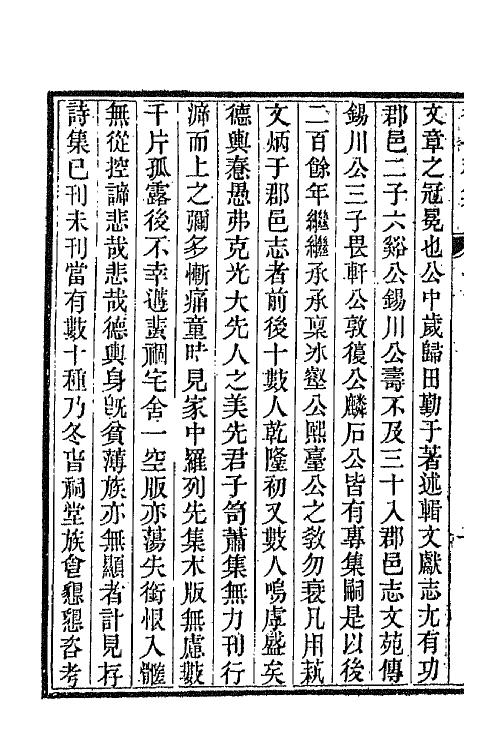 文章之冠冕也公中歲歸田勤于著述輯文獻志尤有功
郡邑二子六谿公錫川公壽不及三十入郡邑志文苑傳
錫川公三子畏軒公敦復公麟石公皆有專集嗣是以後
二百餘年繼繼承承稟冰壑公熙臺公之敎勿衰凡用執
文炳于郡邑志者前後十數人乾隆初又數人嗚虖盛矣
德輿惷愚弗克光大先人之美先君子筠蕭集無力刊行
泝而上之彌多慚痛童時見家中羅列先集木版無慮數
千片孤露後不幸遘蜚禍宅舍一空版亦蕩失銜恨入髓
無從控諦悲哉悲哉德輿身旣貧薄族亦無顯者計見存
詩集已刊未刊當有數十種乃冬旹祠堂族會懇懇咨考